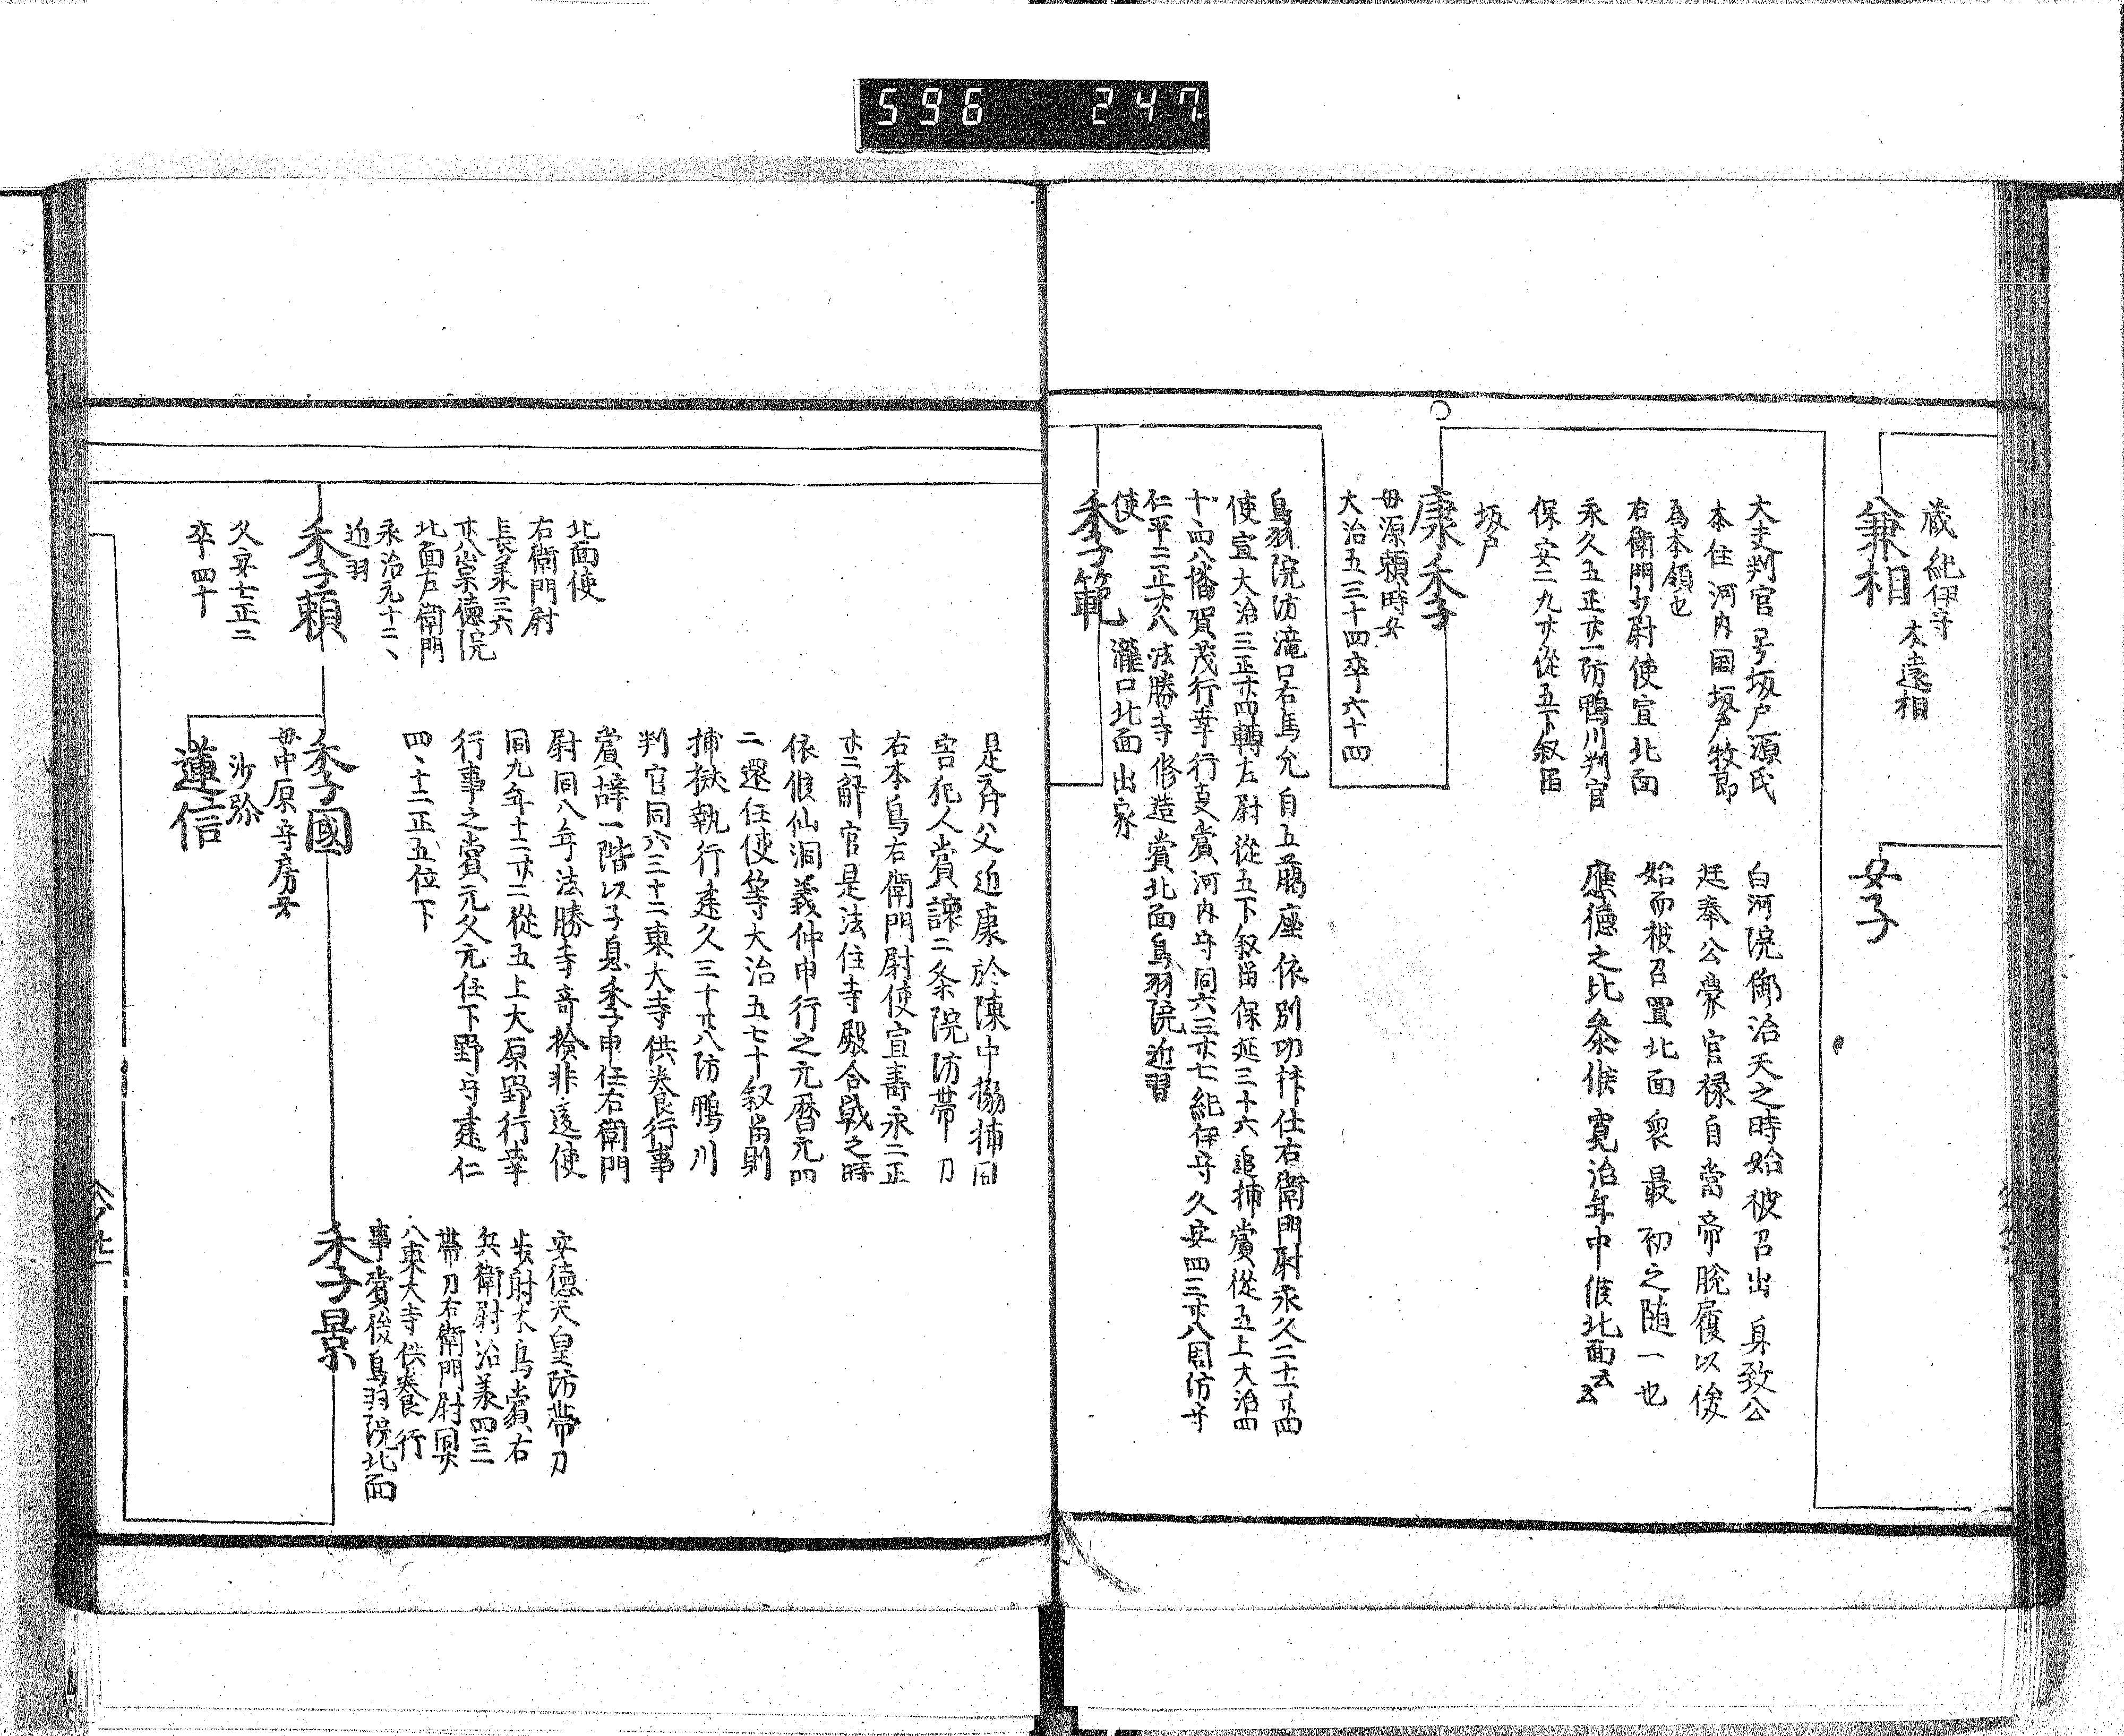 596 247
蔵 紀伊守
本遠相
兼相
女子
大夫判官号坂戸源氏
本住河内国坂戸牧郎
為本領也
右衛門少尉使宣北面
永久五正廿一防鴨川判官
保安二九廿從五下叙留
白河院御治天之時始被召出身致公
廷奉公蒙官禄自當帝脱履以後
始而被召置北面衆最初之随一也
應德之比参候寛治年中候北面云云
坂戸
康季
母源頼時女
大治五三十四卒六十四
鳥羽院防滝口右馬允自五﨟座依別功拝任右衛門尉永久二十二廿四
使宣大治三正廿四轉左尉從五下叙留保延三十六追捕賞從五上大治四
十一四八幡賀茂行幸行叓賞河内守同六三廿七紀伊守久安四三廿八周防守
仁平三正廿八法勝寺修造賞北面鳥羽院近習
使 瀧口北面出家
季範
是 父近康於陳中搦捕同
宮犯人賞譲二条院防帯刀
右本鳥右衛門尉使宣壽永二正
廿二解官是法住寺殿合戦之時
依候仙洞義仲申行之元暦元四
二還任使等大治五七十叙留則
捕樾執行建久三十廿八防鴨川
判官同六三十二東大寺供養行事
賞辞一階以子息季申任右衛門
尉同八年法勝寺奇捡非違使
同九年十二廿二從五上大原野行幸
行事之賞元父元任下野守建仁
四、十二正五位下
北面使
右衛門尉
長承三六
廿八崇德院
北面左衛門
永治元十二、
近羽
季頼
久安七正二
卒四十
季國
母中原守房女
沙弥
蓮信
安德天皇防帯刀
歩射本鳥賞右
兵衛尉治承四三
帯刀右衛門尉同六
八東大寺供養行
事賞後鳥羽院北面
季景